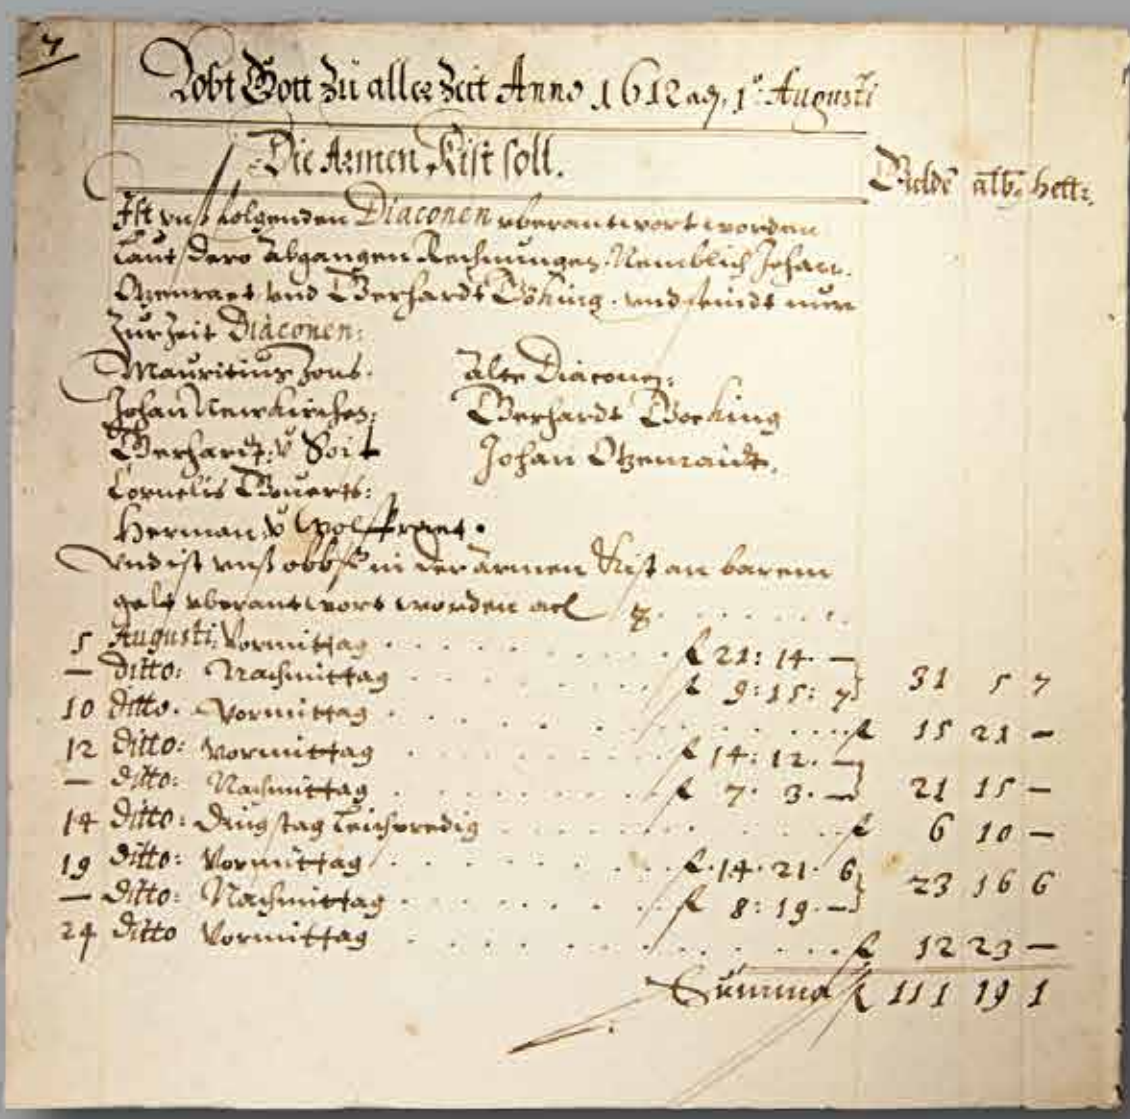 7
Lobt Gott Zu aller Zeit Anno 1612 adj. 1º Augusti
Die Armen Kist soll.
Guldē alb. hell:
Ist unß folgenden Diaconen uberantwort worden
Laut dero Abgangen Rechnungen. Nemblich Johan.
Otzenraet und Gerhardt Böking. und seindt nun
Zur Zeit Diaconen:
Mauritius Zons. Alte Diaconen:
Johan Newkirchen. Gerhardt Boeking
Gerhardt v Soit Johan Otzenraidt.
Cornelis Gouerts:
Herman v Wolffraet.
Und ist unß in der armen Kist an barem
gelt uberantwort worden
5 Augusti. Vormittag f 21: 14. —
— ditto: Nachmittag f 9: 15: 7 31 5 7
10 ditto. Vormittag f 15 21 —
12 ditto: Vormittag f 14: 12. —
— ditto: Nachmittag f 7. 3. — 21 15 —
14 ditto: Dingstag Leichpredig f 6 10 —
19 ditto: Vormittag f. 14. 21. 6
— ditto: Nachmittag f 8: 19. — 23 16 6
24 ditto Vormittag f 12 23 —
Summa f 111 19 1